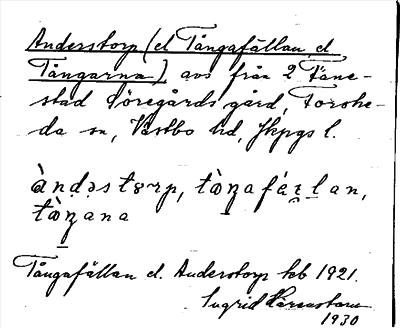 Anderstorp (el Tångafällan el
Tångarna) avs från 2 Fäne-
stad Göregårds gård, Forshe-
da sn, Västbo hd, Jkpgs l.
àṇḍəstɵrp, tàŋafɛ́ḷan,
tàŋana
Tångafällan el. Anderstorp beb 1921.
Ingrid
1930